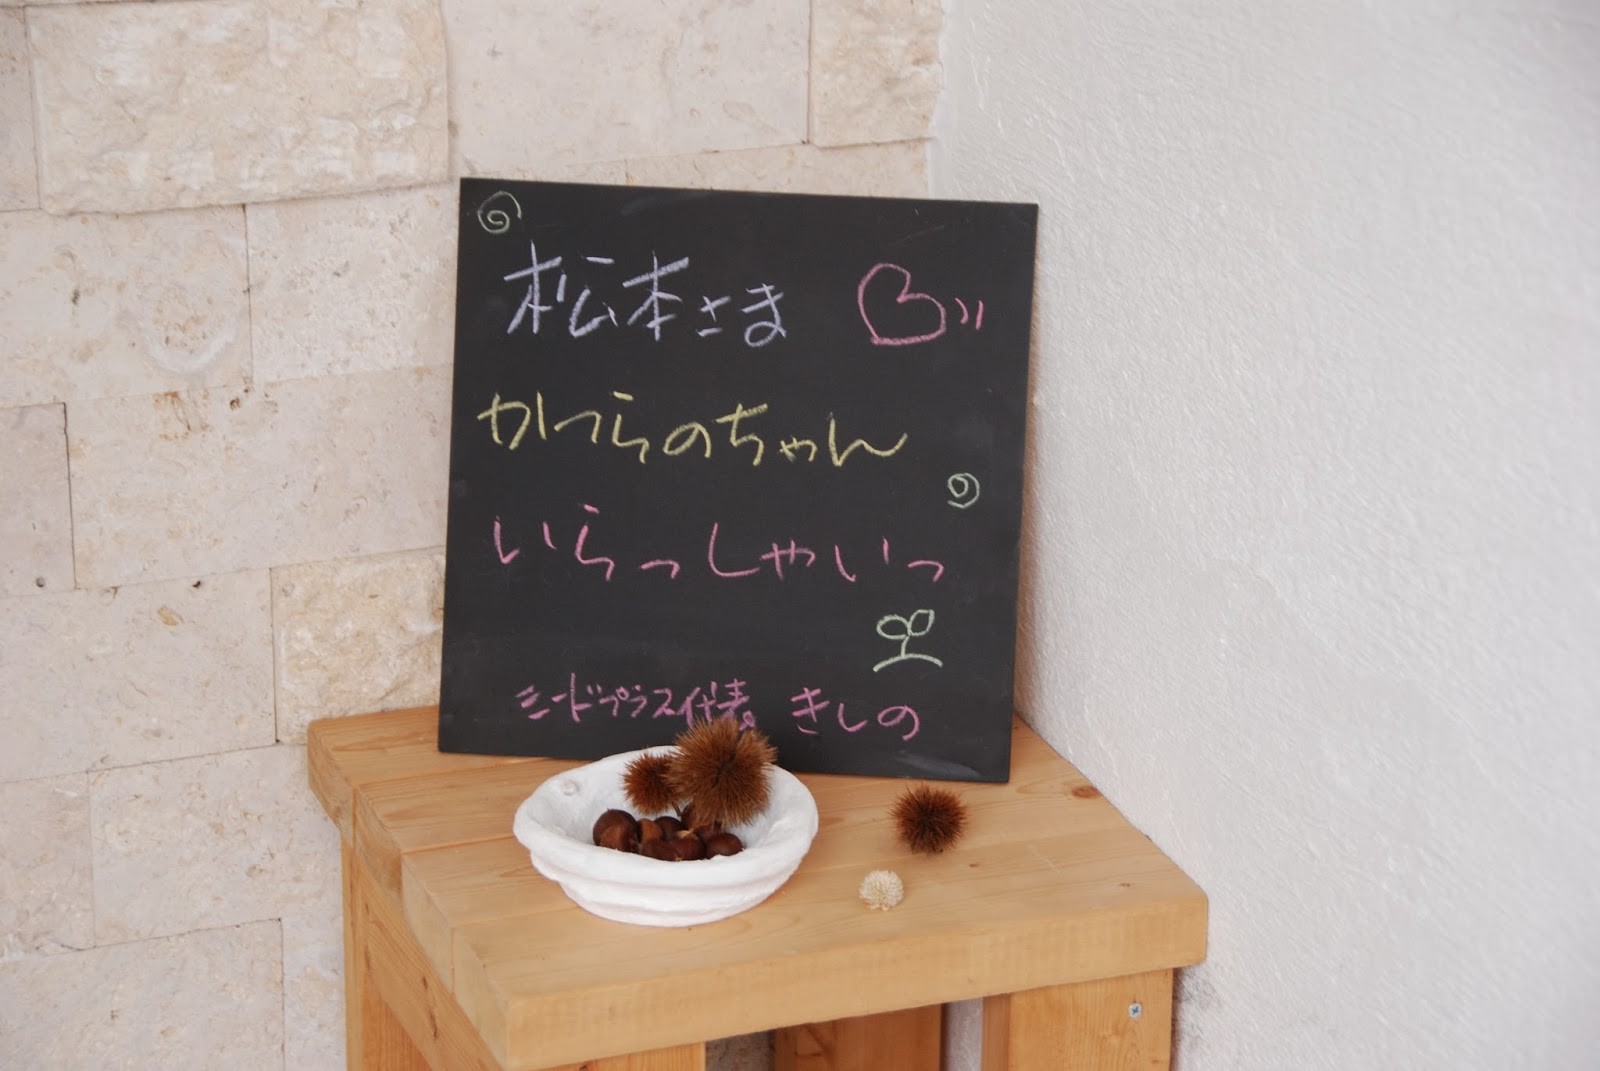 松本さま
かつらのちゃん
いらっしゃいっ
シードプラス代表 きしの